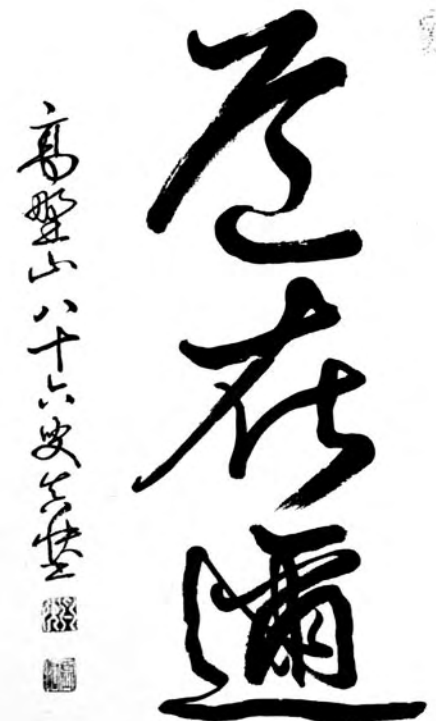 道在邇
高野山八十六叟